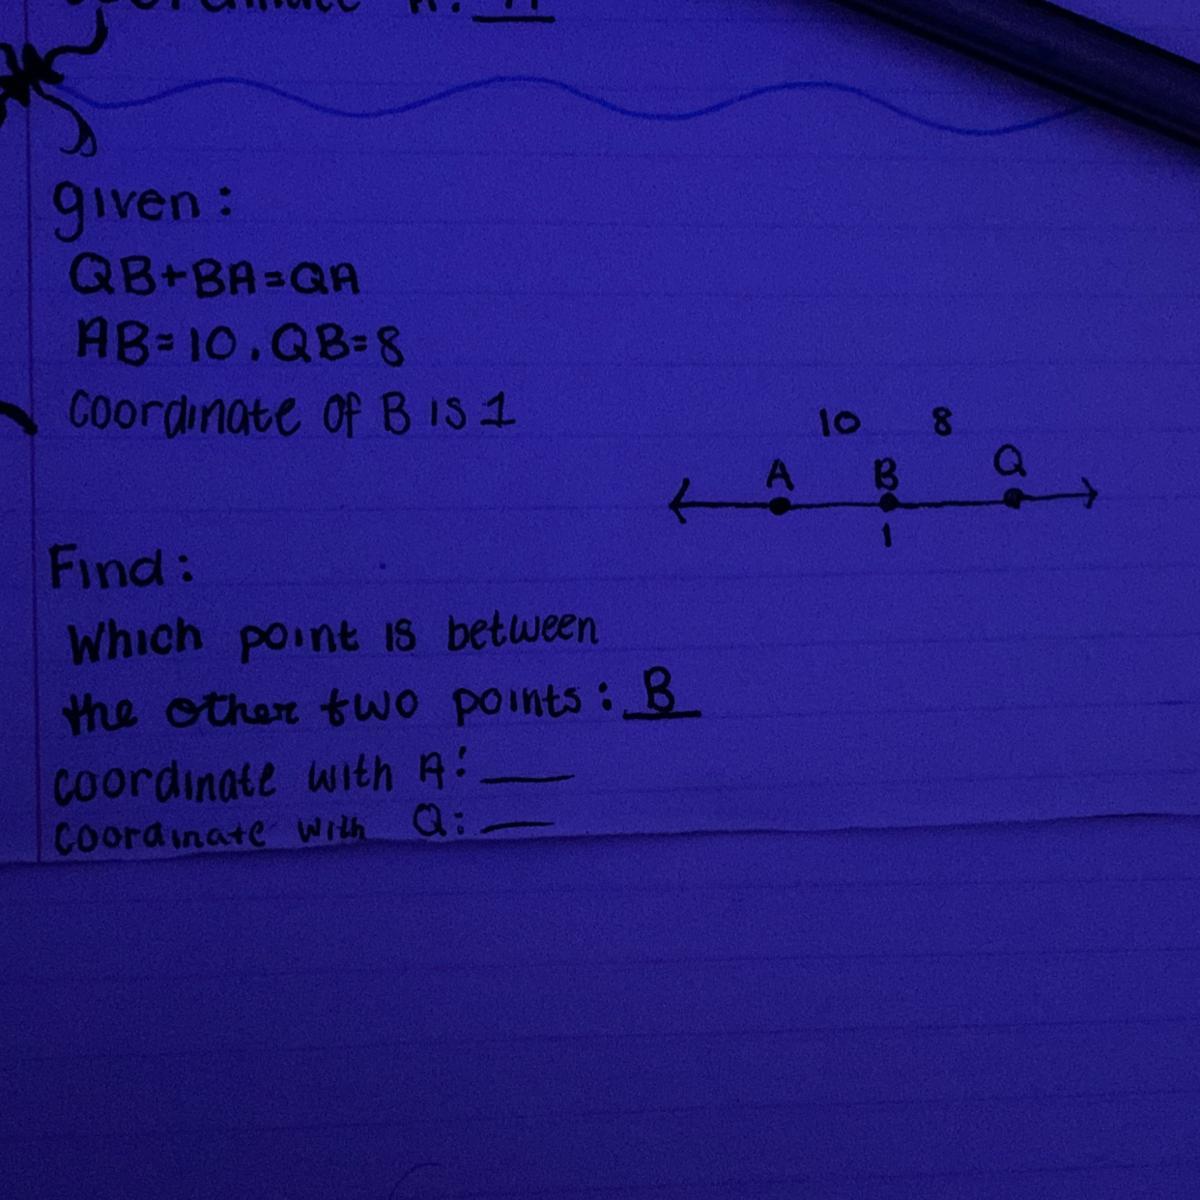 given:
QB+BA=QA
AB=10, QB=8
Coordinate of B is 1
10 8
A B Q
1
Find:
Which point is between
the other two points: B
coordinate with A: ___
coordinate with Q: ___